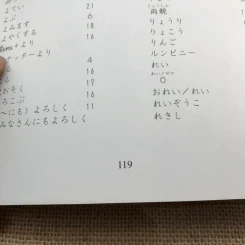 よてい 21
よぶ 6
よみます 18
よやくする 16
より
ッターより 4
る 16
おそく 17
ろこぶ 16
～にも）よろしく 11
みなさんにもよろしく
りょうしん
両親
りょうり
りょこう
りんご
ルンビニー
れい
れい／ゼロ
０
おれい／れい
れいぞうこ
れきし
119